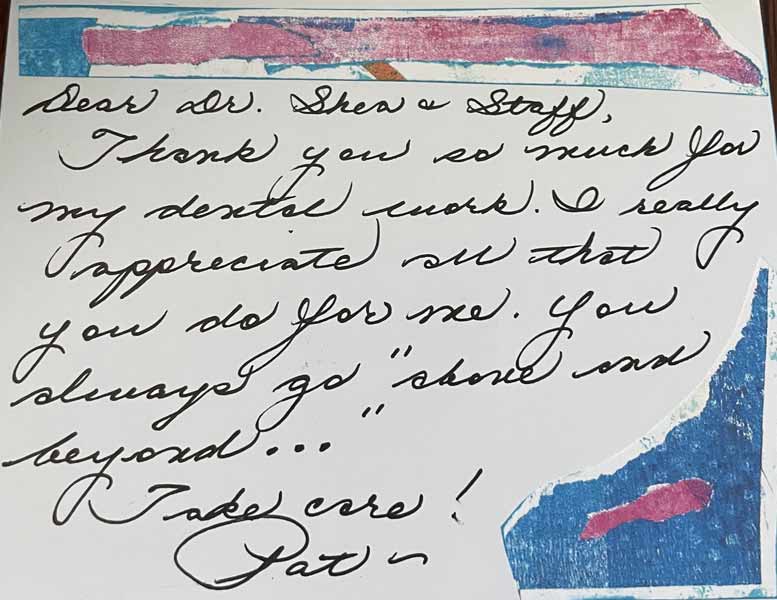 Dear Dr. Shea & Staff,
Thank you so much for
my dental work. I really
appreciate all that
you do for me. You
always go "above and
beyond..."
Take care!
Pat ~